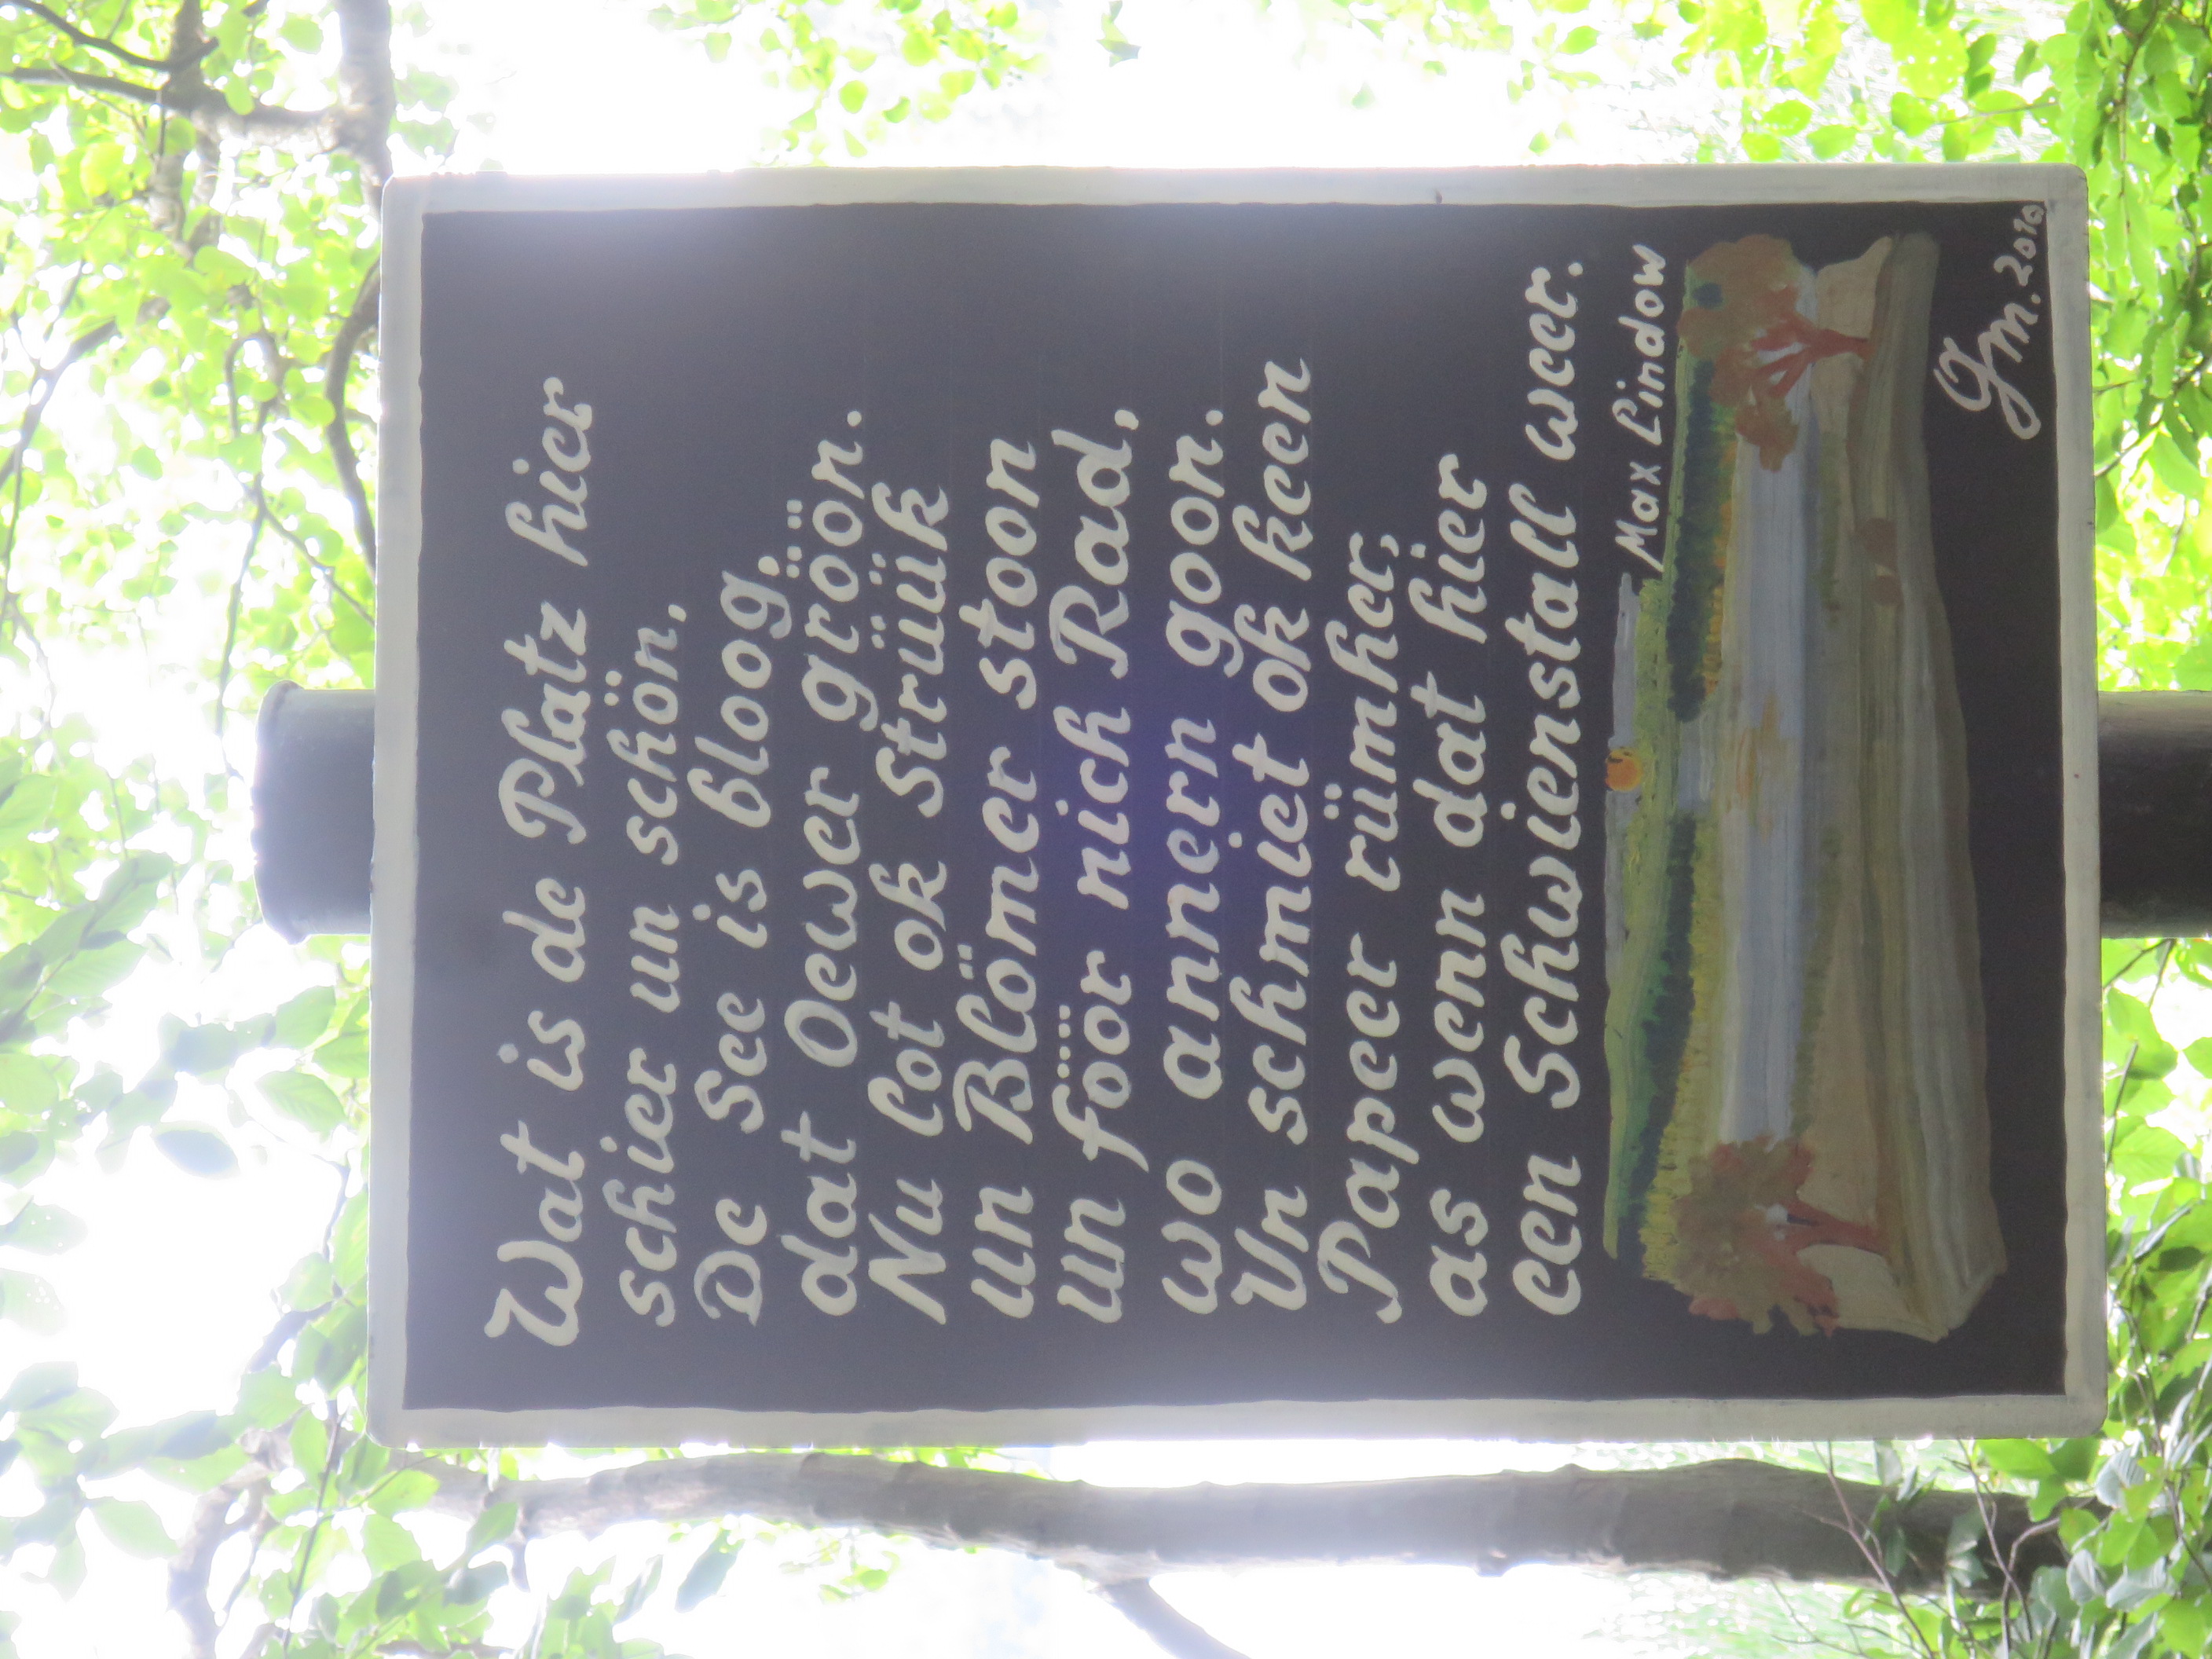 Wat is de Platz hier
schier un schön,
De See is bloog,
dat Oewer gröön.
Nu lot ok Strüük
un Blömer stoon
un föör nich Rad,
wo annern goon.
Un schmiet ok keen
Papeer rümher,
as wenn dat hier
een Schwienstall weer.
Max Lindow
Gm. 2010